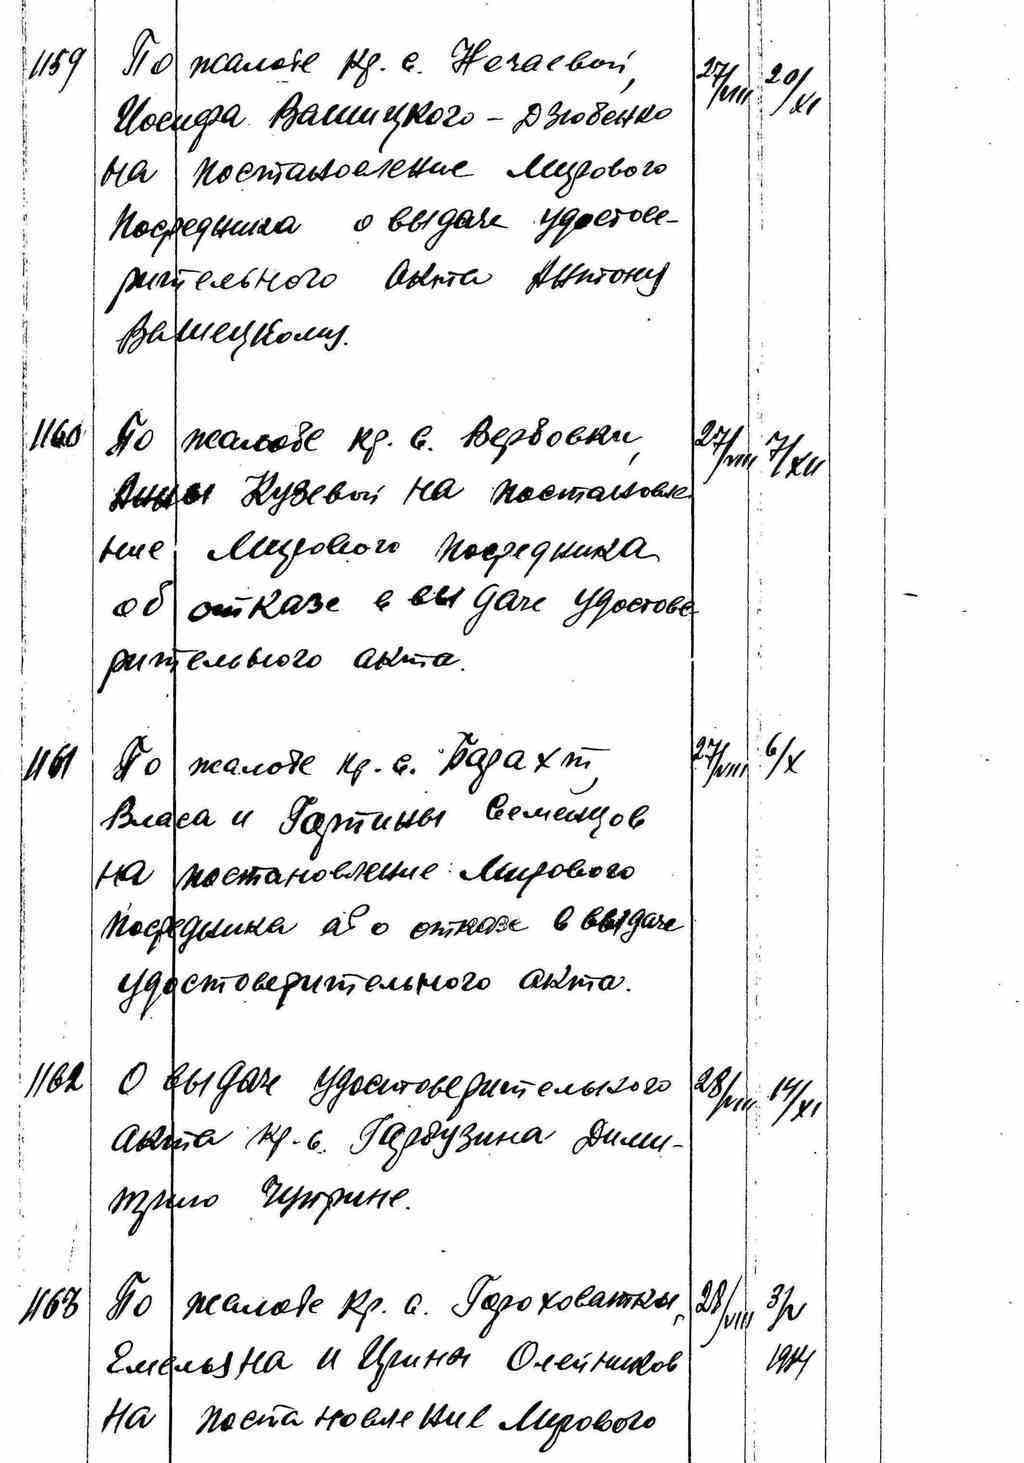 1159 По жалобе кр. с. Нечаевой, 27/VIII 20/XI
Иосифа Вашицкого - Дзюбенко
на постановление Мирового
Посредника о выдаче удостове-
рительного акта Антону
Вашецкому.
1160 По жалобе кр. с. Вербовки, 27/VIII 7/XII
Анны Кузевой на постановле
ние Мирового посредника
об отказе в выдаче удостове
рительного акта.
1161 По жалобе кр. с. Барахт, 27/VIII 6/X
Власа и Гортины Семенцов
на постановление Мирового
посредника о отказе в выдаче
удостоверительного акта.
1162 О выдаче удостоверительного 28/VIII 14/XI
акта кр. с. Гарбузина Дими-
трию Чуприне.
1163 По жалобе кр. с. Гороховатки, 28/VIII 3/V
Емельяна и Ирины Олейников 1914
на постановление Мирового